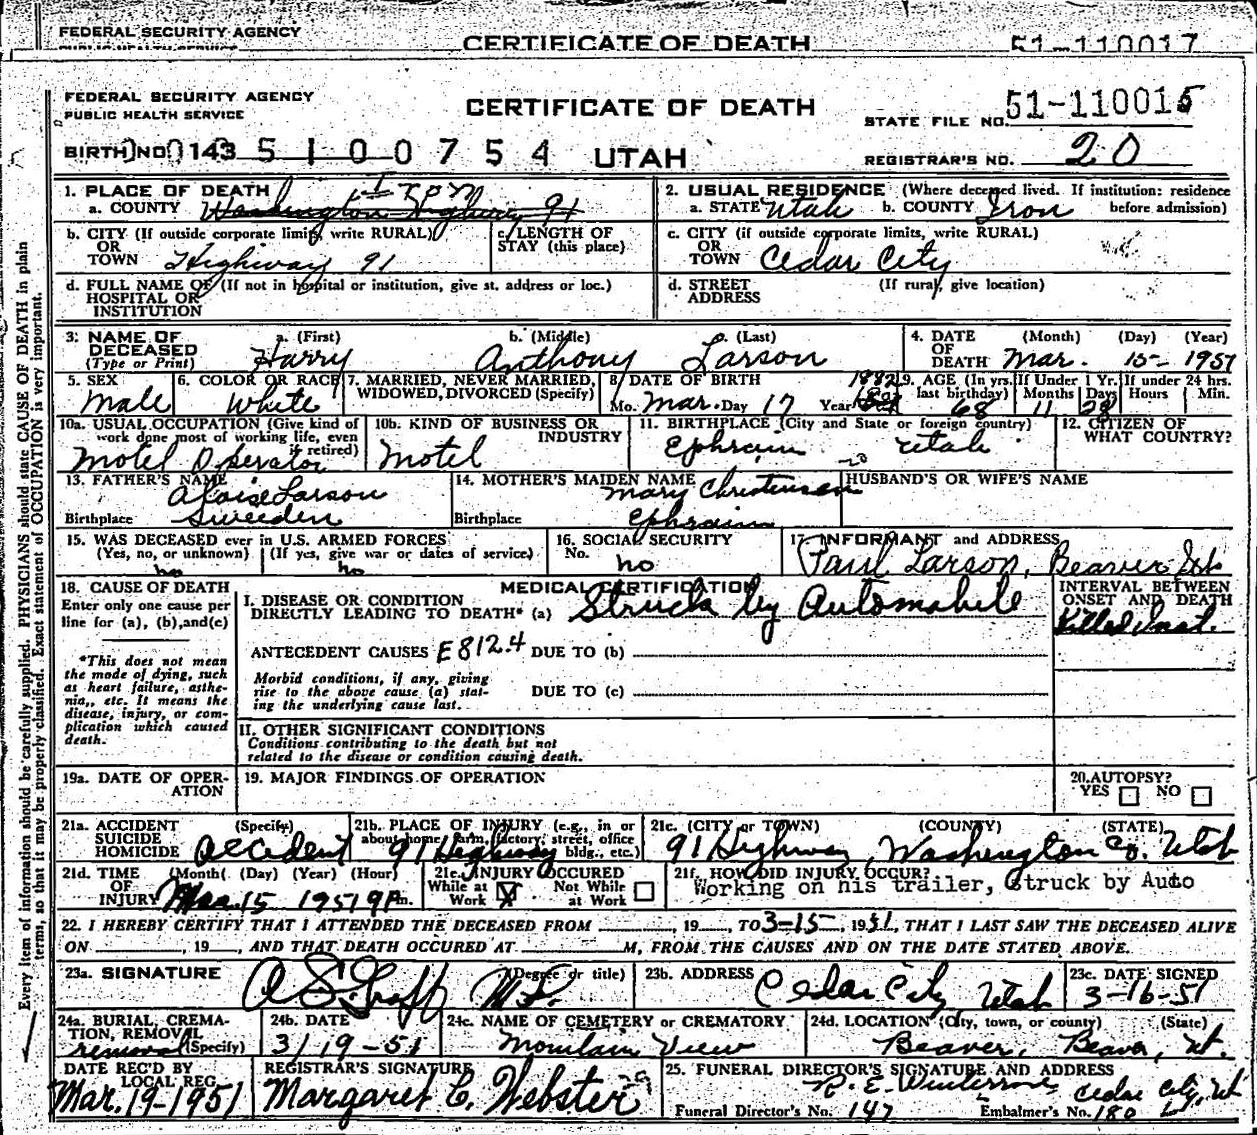 FEDERAL SECURITY AGENCY
PUBLIC HEALTH SERVICE
CERTIFICATE OF DEATH
51-110017
FEDERAL SECURITY AGENCY
PUBLIC HEALTH SERVICE
CERTIFICATE OF DEATH
STATE FILE NO. 51-110015
BIRTH NO. 143 5100754 UTAH
REGISTRAR'S NO. 20
1. PLACE OF DEATH
a. COUNTY Washington Highway 91 Iron
2. USUAL RESIDENCE (Where deceased lived. If institution: residence before admission)
a. STATE Utah b. COUNTY Iron
b. CITY (If outside corporate limits, write RURAL) OR TOWN Highway 91
c. LENGTH OF STAY (this place)
c. CITY (if outside corporate limits, write RURAL) OR TOWN Cedar City
d. FULL NAME OF (If not in hospital or institution, give st. address or loc.) HOSPITAL OR INSTITUTION
d. STREET ADDRESS (If rural, give location)
3. NAME OF DECEASED (Type or Print)
a. (First) Harry b. (Middle) Anthony c. (Last) Larson
4. DATE OF DEATH (Month) (Day) (Year) Mar. 15- 1951
5. SEX Male
6. COLOR OR RACE White
7. MARRIED, NEVER MARRIED, WIDOWED, DIVORCED (Specify)
8. DATE OF BIRTH Mo. Mar. Day 17 Year 1882
9. AGE (In yrs. last birthday) 68 If Under 1 Yr. Months 11 Days 28 If under 24 hrs. Hours Min.
10a. USUAL OCCUPATION (Give kind of work done most of working life, even if retired) Motel Operator
10b. KIND OF BUSINESS OR INDUSTRY Motel
11. BIRTHPLACE (City and State or foreign country) Ephraim Utah
12. CITIZEN OF WHAT COUNTRY?
13. FATHER'S NAME Larson
Birthplace Sweeden
14. MOTHER'S MAIDEN NAME Mary Christensen
Birthplace Ephraim
HUSBAND'S OR WIFE'S NAME
15. WAS DECEASED ever in U.S. ARMED FORCES
(Yes, no, or unknown) no (If yes, give war or dates of service) no
16. SOCIAL SECURITY No. no
17. INFORMANT and ADDRESS Paul Larson, Beaver Ut
18. CAUSE OF DEATH
Enter only one cause per line for (a), (b), and (c)
*This does not mean the mode of dying, such as heart failure, asthenia,, etc. It means the disease, injury, or complication which caused death.
MEDICAL CERTIFICATION
I. DISEASE OR CONDITION DIRECTLY LEADING TO DEATH* (a) Struck by Automobile
INTERVAL BETWEEN ONSET AND DEATH
Killed Inst.
ANTECEDENT CAUSES E812.4 DUE TO (b)
Morbid conditions, if any, giving rise to the above cause (a) stating the underlying cause last.
DUE TO (c)
II. OTHER SIGNIFICANT CONDITIONS
Conditions contributing to the death but not related to the disease or condition causing death.
19a. DATE OF OPERATION
19. MAJOR FINDINGS OF OPERATION
20. AUTOPSY? YES NO
21a. ACCIDENT SUICIDE HOMICIDE (Specify) Accident
21b. PLACE OF INJURY (e.g., in or about home, farm, factory, street, office bldg., etc.) 91 Highway
21c. (CITY or TOWN) (COUNTY) (STATE)
91 Highway, Washington Co. Utah
21d. TIME OF INJURY (Month) (Day) (Year) (Hour) Mar. 15 1951 9 P m.
21e. INJURY OCCURED While at Work X Not While at Work
21f. HOW DID INJURY OCCUR?
Working on his trailer, Struck by Auto
22. I HEREBY CERTIFY THAT I ATTENDED THE DECEASED FROM ____, 19__, TO 3-15, 1951, THAT I LAST SAW THE DECEASED ALIVE
ON ____, 19__, AND THAT DEATH OCCURED AT ____M, FROM THE CAUSES AND ON THE DATE STATED ABOVE.
23a. SIGNATURE (Degree or title) A S Graff M.D.
23b. ADDRESS Cedar City Utah
23c. DATE SIGNED 3-16-51
24a. BURIAL, CREMATION, REMOVAL (Specify) removal
24b. DATE 3/19-51
24c. NAME OF CEMETERY or CREMATORY Mountain View
24d. LOCATION (City, town, or county) (State) Beaver, Beaver, Ut.
DATE REC'D BY LOCAL REG. Mar. 19-1951
REGISTRAR'S SIGNATURE Margaret C. Webster
25. FUNERAL DIRECTOR'S SIGNATURE AND ADDRESS
R. E. Cedar City, Ut
Funeral Director's No. 147 Embalmer's No. 180
Every item of information should be carefully supplied. PHYSICIANS should state CAUSE OF DEATH in plain
terms, so that it may be properly classified. Exact statement of OCCUPATION is very important.